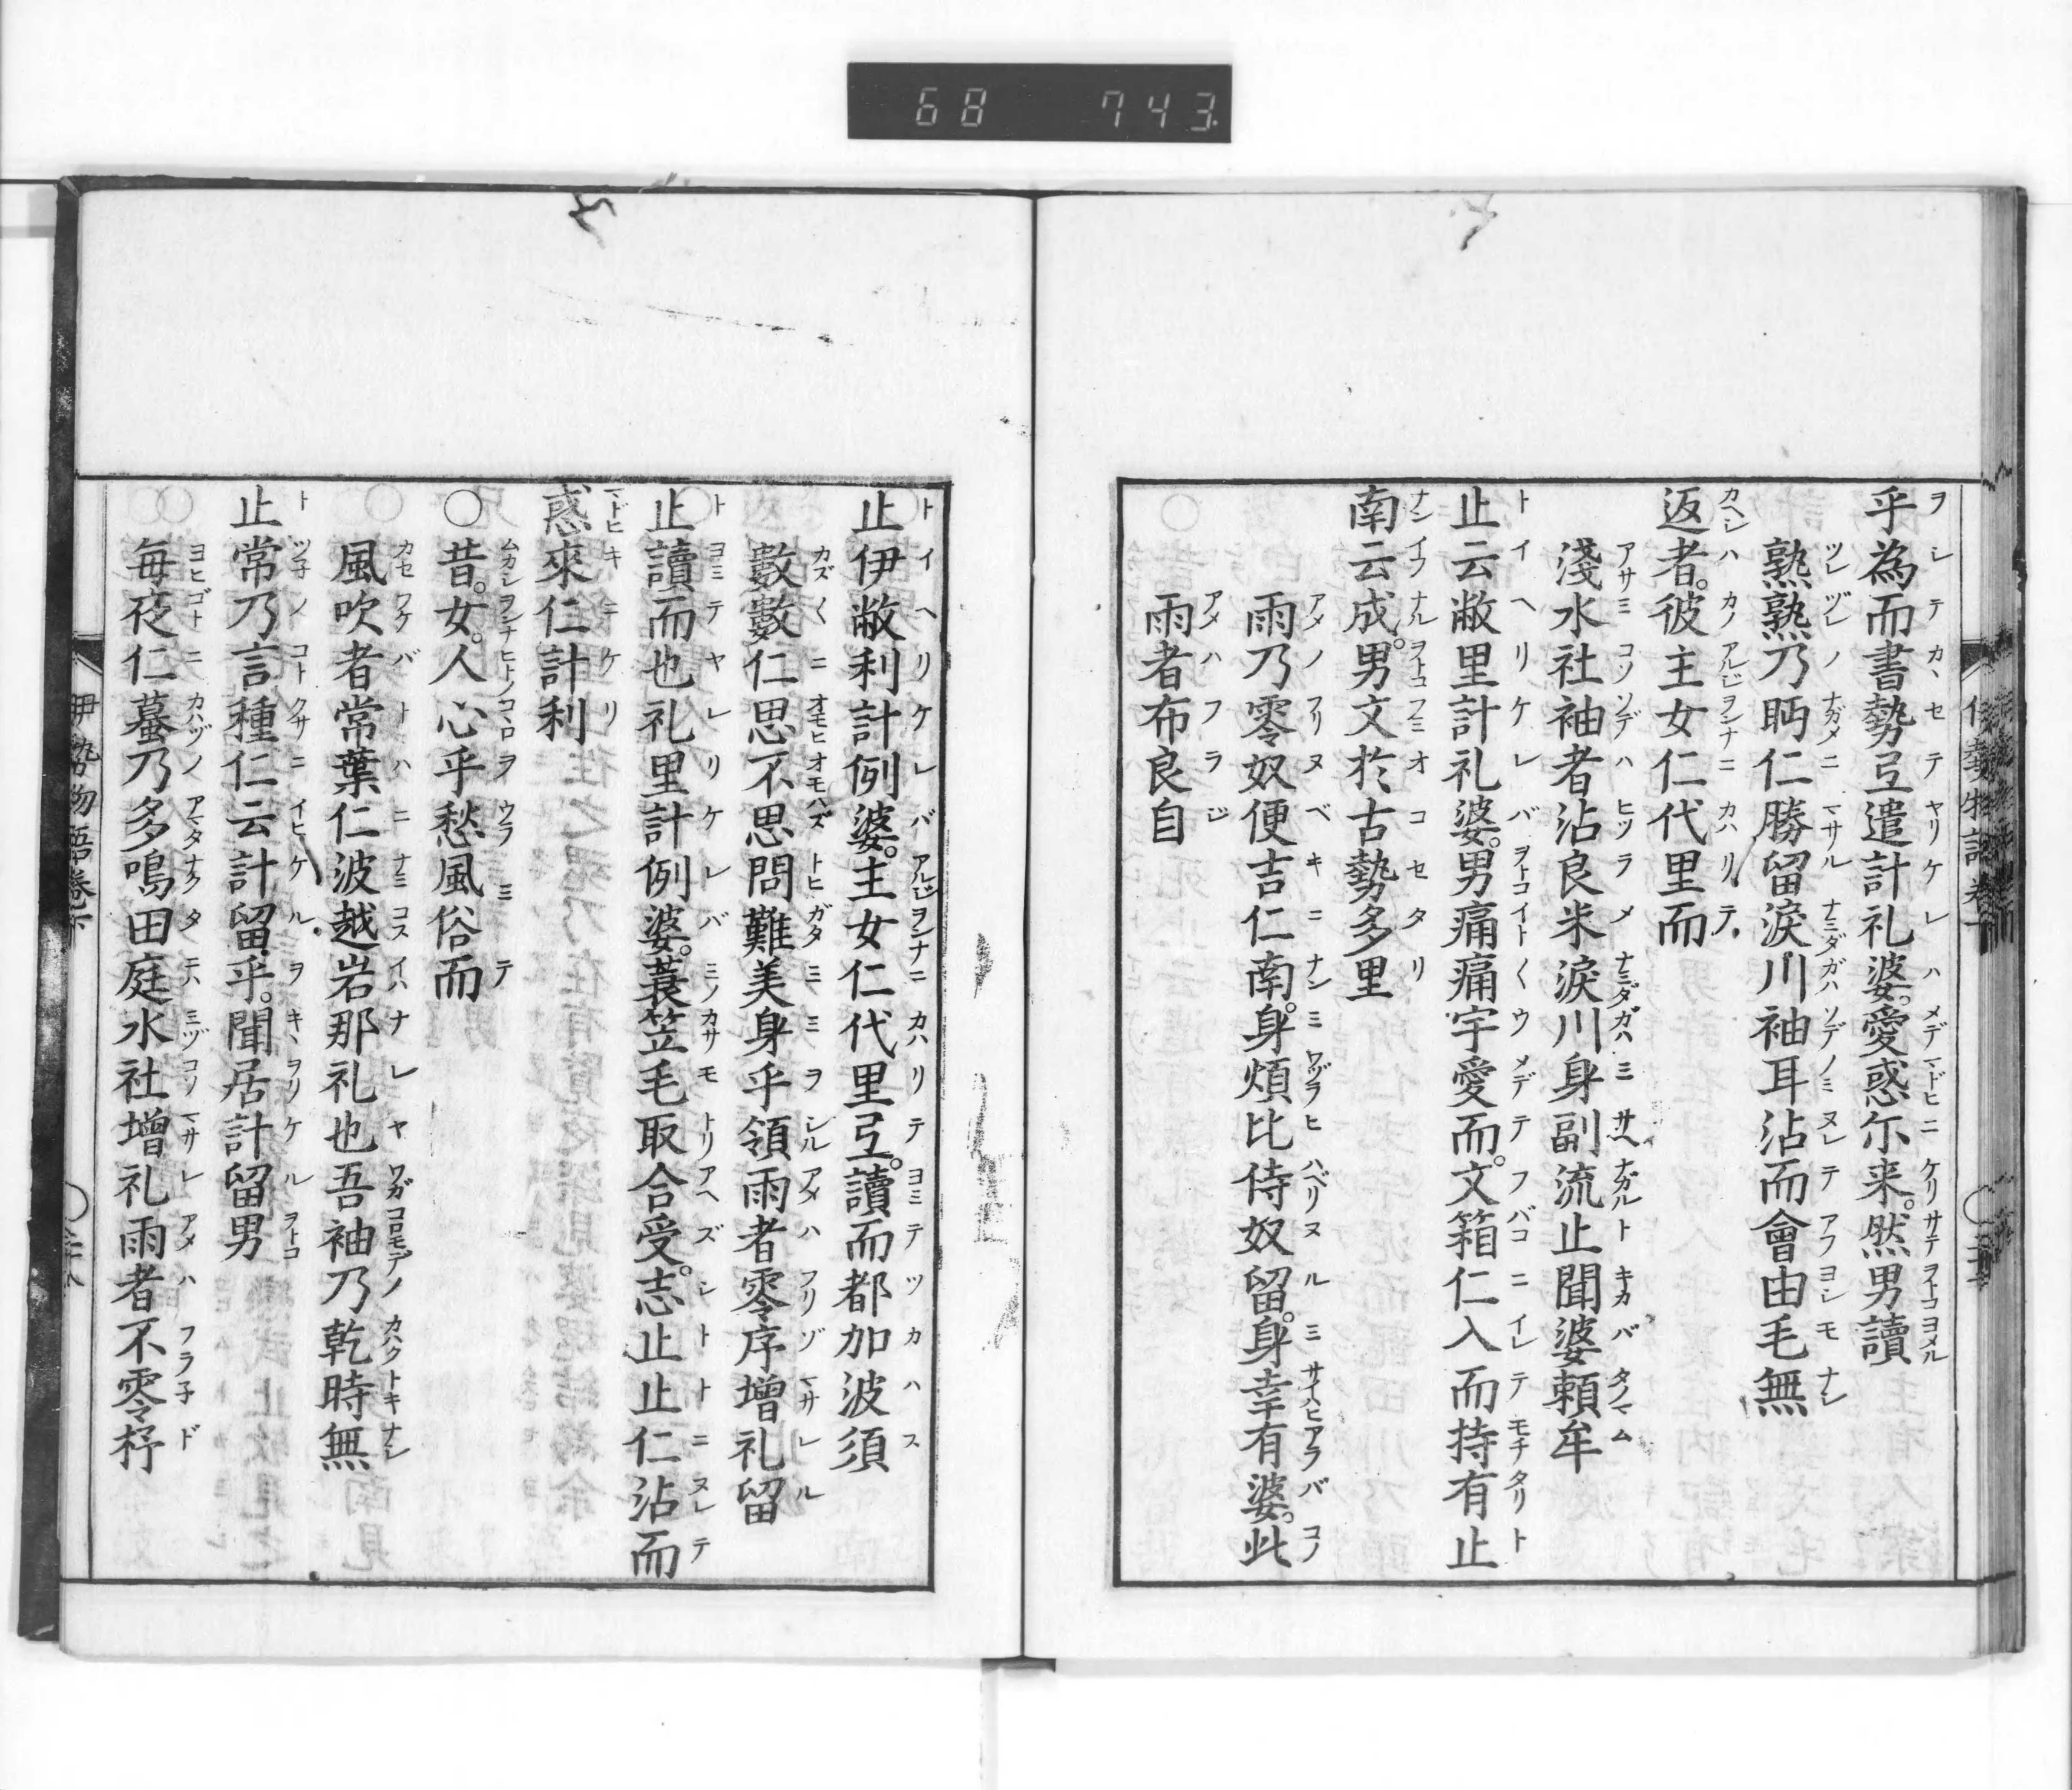 68 743
乎為而書勢弖遣計礼婆。愛惑尓来。然男讀
熟熟乃眄仁勝留涙川袖耳沾而會由毛無
返者。彼主女仁代里而
淺水社袖者沾良米涙川身副流止聞婆頼牟
止云敝里計礼婆。男痛痛宇愛而。文箱仁入而持有止
南云成。男文於古勢多里
雨乃零奴便吉仁南。身煩比侍奴留。身幸有婆。此
雨者布良自
止伊敝利計例婆。主女仁代里弖。讀而都加波須
數數仁思不思問難美身乎領雨者零序增礼留
止讀而也礼里計例婆。蓑笠毛取合受。志止止仁沾而
惑來仁計利
○昔。女。人心乎愁風俗而
風吹者常葉仁波越岩那礼也吾袖乃乾時無
止常乃言種仁云計留乎。聞居計留男
毎夜仁蟇乃多鳴田庭水社增礼雨者不零杼
伊勢物語卷下